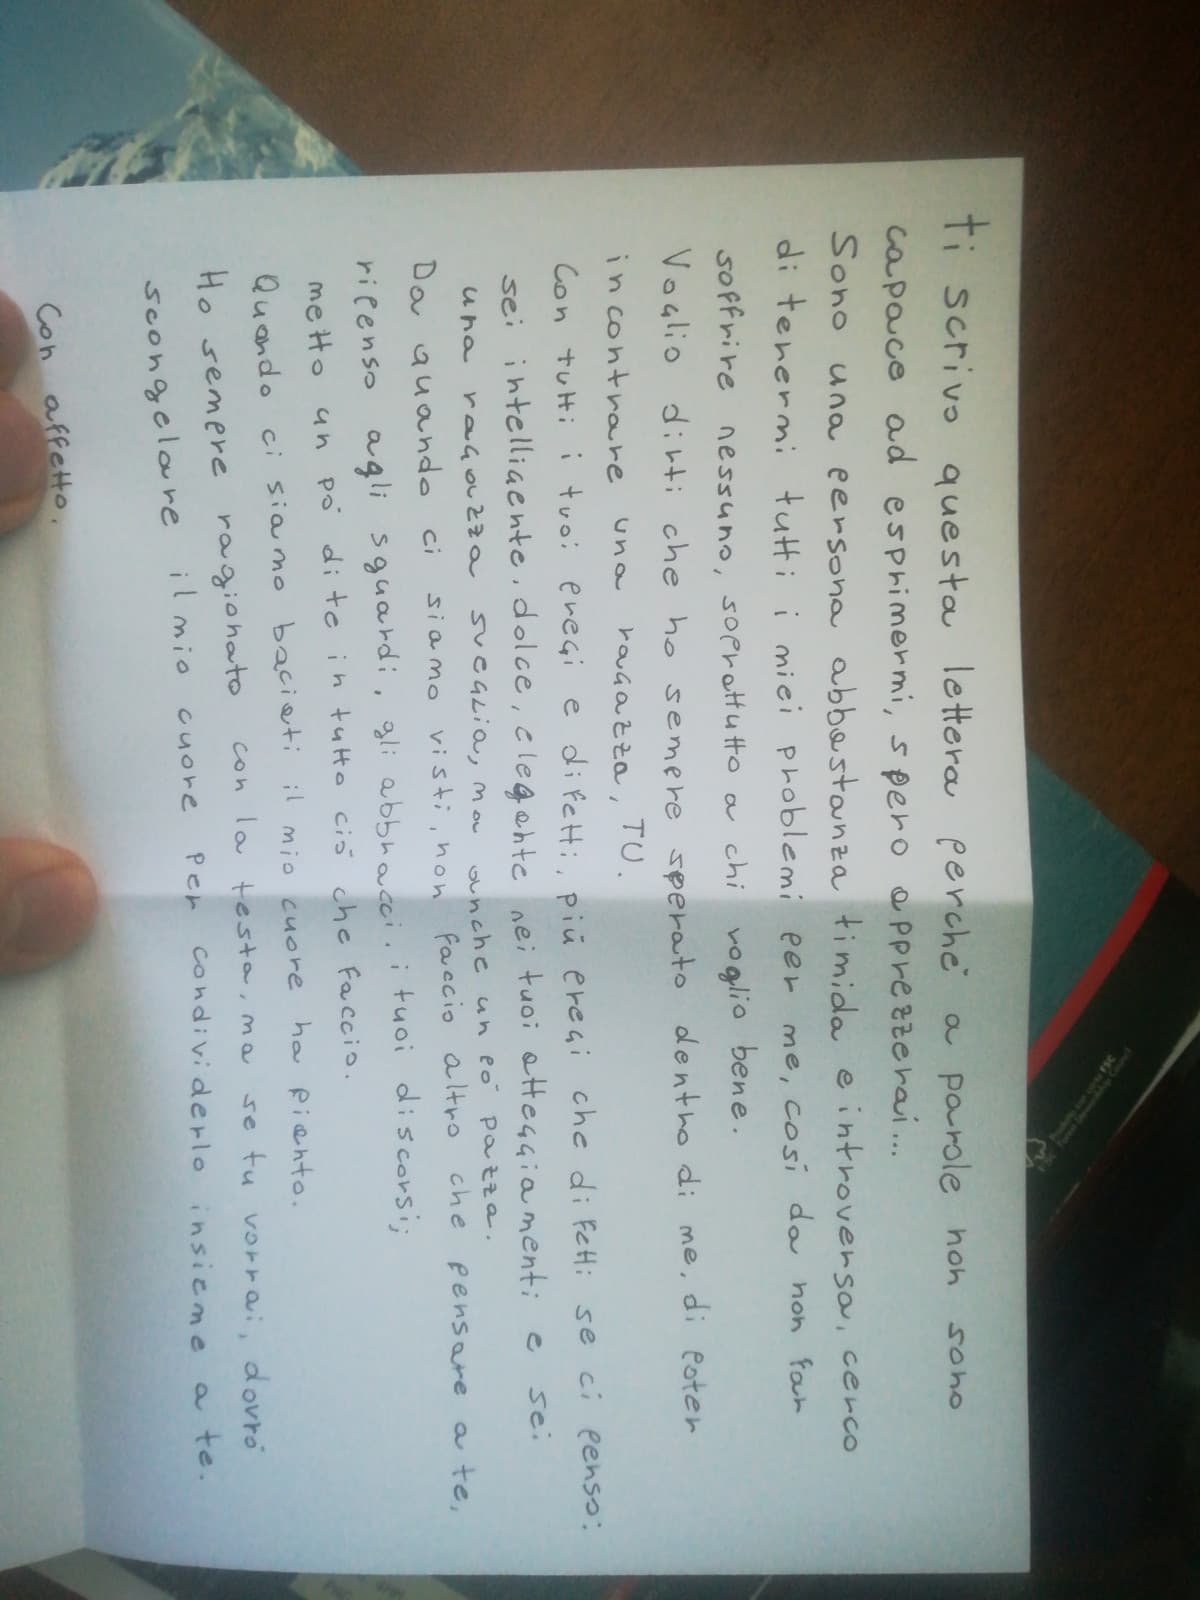 ti scrivo questa lettera perché a parole non sono
capace ad esprimermi, spero apprezzerai...
Sono una persona abbastanza timida e introversa, cerco
di tenermi tutti i miei problemi per me, così da non far
soffrire nessuno, soprattutto a chi voglio bene.
Voglio dirti che ho sempre sperato dentro di me, di poter
incontrare una ragazza, TU.
Con tutti i tuoi pregi e difetti, più pregi che difetti se ci penso:
sei intelligente, dolce, elegante nei tuoi atteggiamenti e sei
una ragazza sveglia, ma anche un pò pazza.
Da quando ci siamo visti, non faccio altro che pensare a te,
ripenso agli sguardi, gli abbracci, i tuoi discorsi;
metto un pò di te in tutto ciò che faccio.
Quando ci siamo baciati il mio cuore ha pianto.
Ho sempre ragionato con la testa, ma se tu vorrai, dovrò
scongelare il mio cuore per condividerlo insieme a te.
Con affetto.
FSC